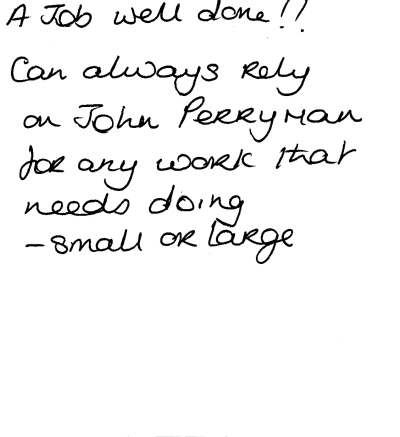 A Job well done!!
Can always Rely
on John Perryman
for any work that
needs doing
- small or large